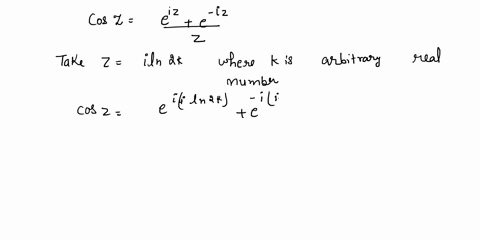 cos z = e^{iz} + e^{-iz} / 2
Take z = i ln 2k where k is arbitrary real
number
cos z = e^{i(i ln 2k)} + e^{-i(i